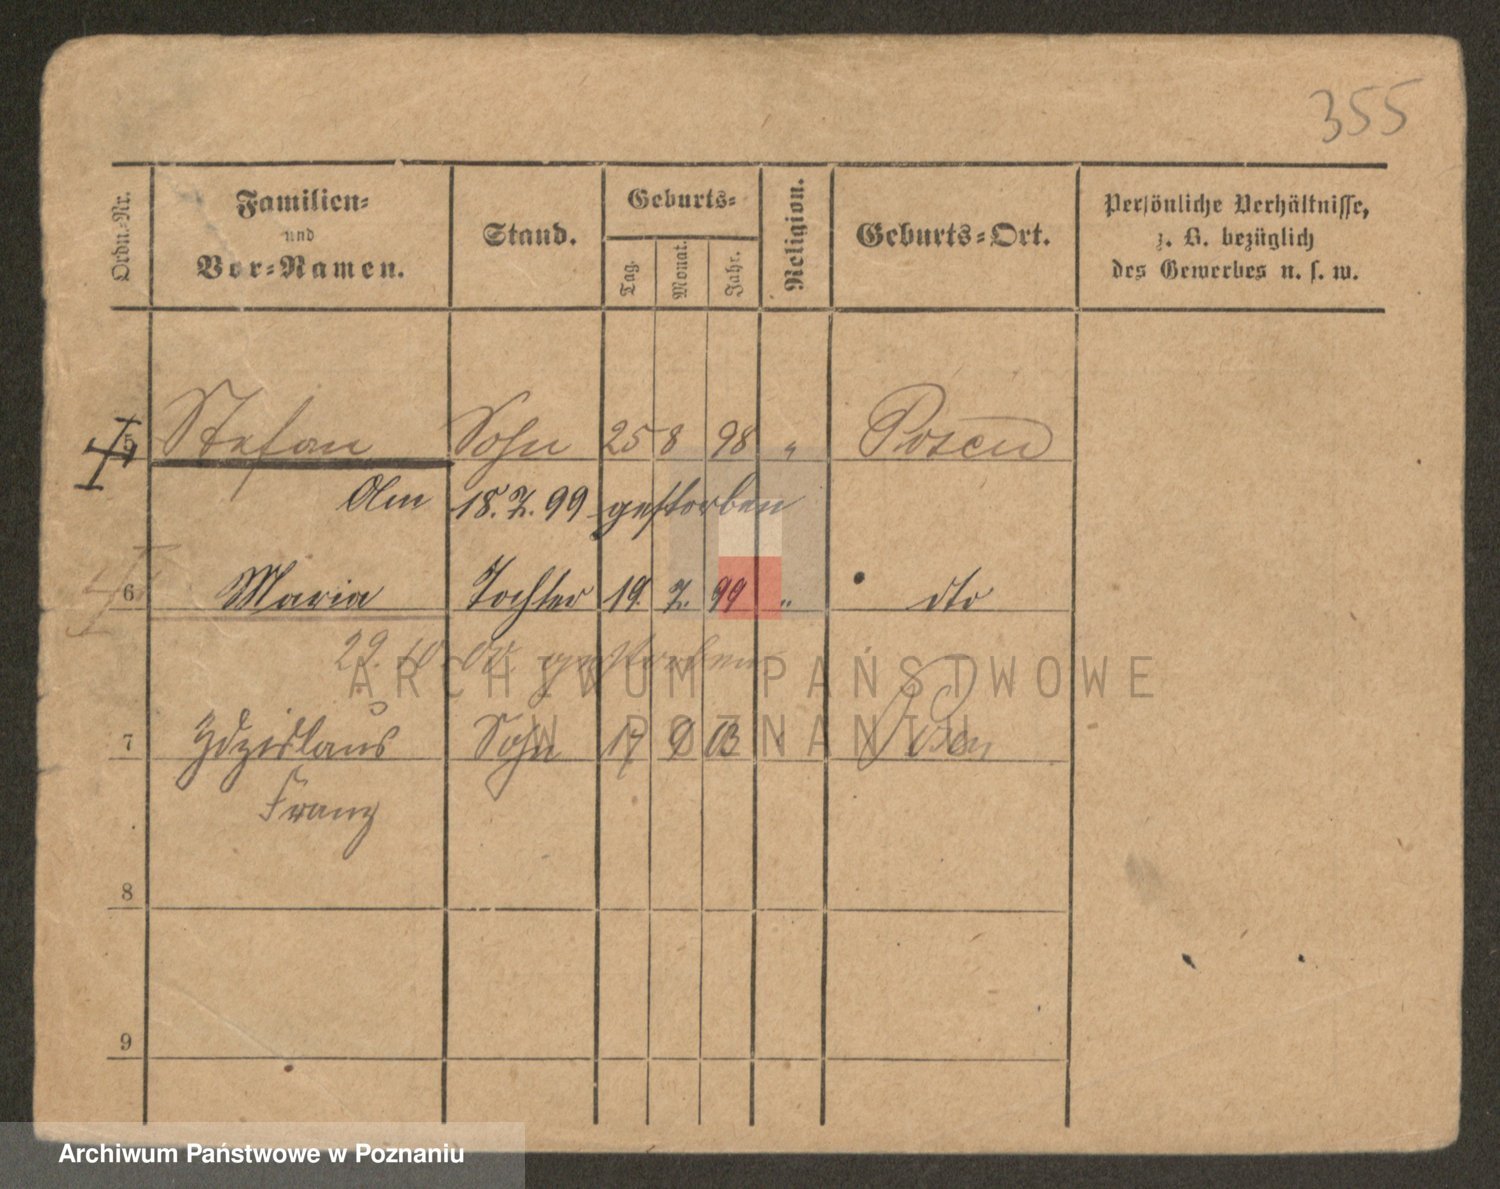 355
Ordn.-Nr.
Familien-
und
Vor-Namen.
Stand.
Geburts-
Tag.
Monat.
Jahr.
Religion.
Geburts-Ort.
Persönliche Verhältnisse,
z. B. bezüglich
des Gewerbes u. s. w.
5 Stefan Sohn 25 8 98 " Posen
Am 18. 7. 99 gestorben
6 Maria Tochter 19. 7. 99 " dto
29. 10. 00 gestorben
ARCHIWUM PAŃSTWOWE
W POZNANIU
7 Zdzislaus Sohn 17 9 03 Posen
Franz
8
9
Archiwum Państwowe w Poznaniu